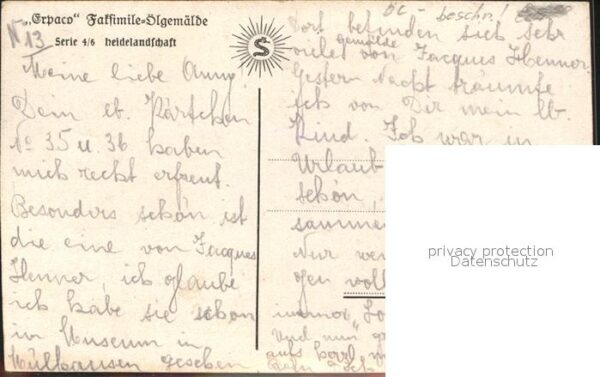 „Erpaco“ Faksimile-Ölgemälde
Serie 4/6 Heidelandschaft
No 13
S
Meine liebe Anny.
Dein lb. Kärtchen
No 35 u. 36 haben
mich recht erfreut.
Besonders schön ist
die eine von Jacques
Henner, ich glaube
ich habe sie schon
im Museum in
Mülhausen gesehen
Dort befinden sich sehr
viele gemälde von Jacques Henner.
Gestern Nacht träumte
ich von Dir mein lb.
Kind. Ich war in
Urlaub
schön,
sammen
Nur
gen voll
immer
Und nun
privacy protection
Datenschutz